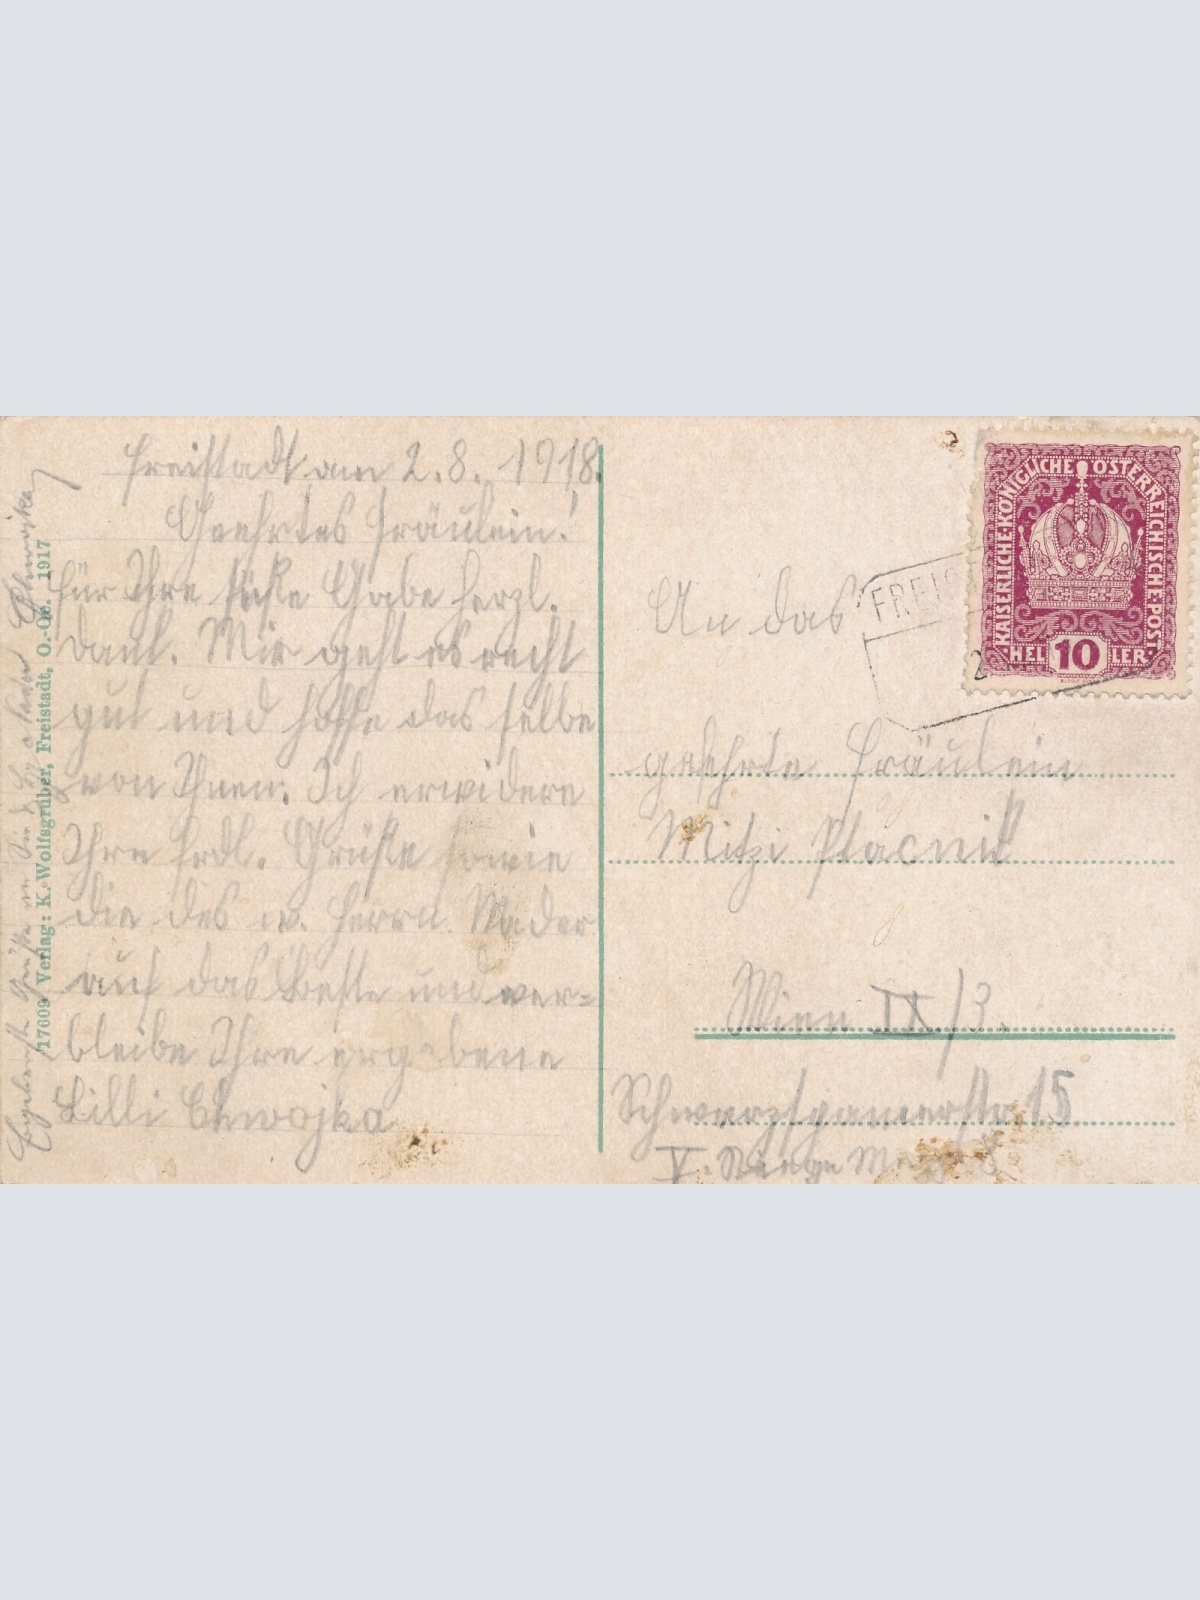 Freistadt am 2.8.1918.
Geehrtes Fräulein!
für Ihre süße Gabe herzl.
Dank. Mir geht es recht
gut und hoffe das selbe
von Ihnen. Ich erwidere
Ihre frdl. Grüße sowie
die des w. Herrn. Nader
auf das Beste und ver=
bleibe Ihre ergebene
Lilli Chwojka
Ergebenste Grüße an Sie
Chwojka
17609 Verlag: K. Wolfsgruber, Freistadt, O.-Oe. 1917
KAISERLICHE KÖNIGLICHE ÖSTERREICHISCHE POST
HEL 10 LER
FREIS
2
An das
geehrte Fräulein
Mitzi Ptacnik
Wien IX/3.
Schwarzspanierstr. 15
V. Stiege 8